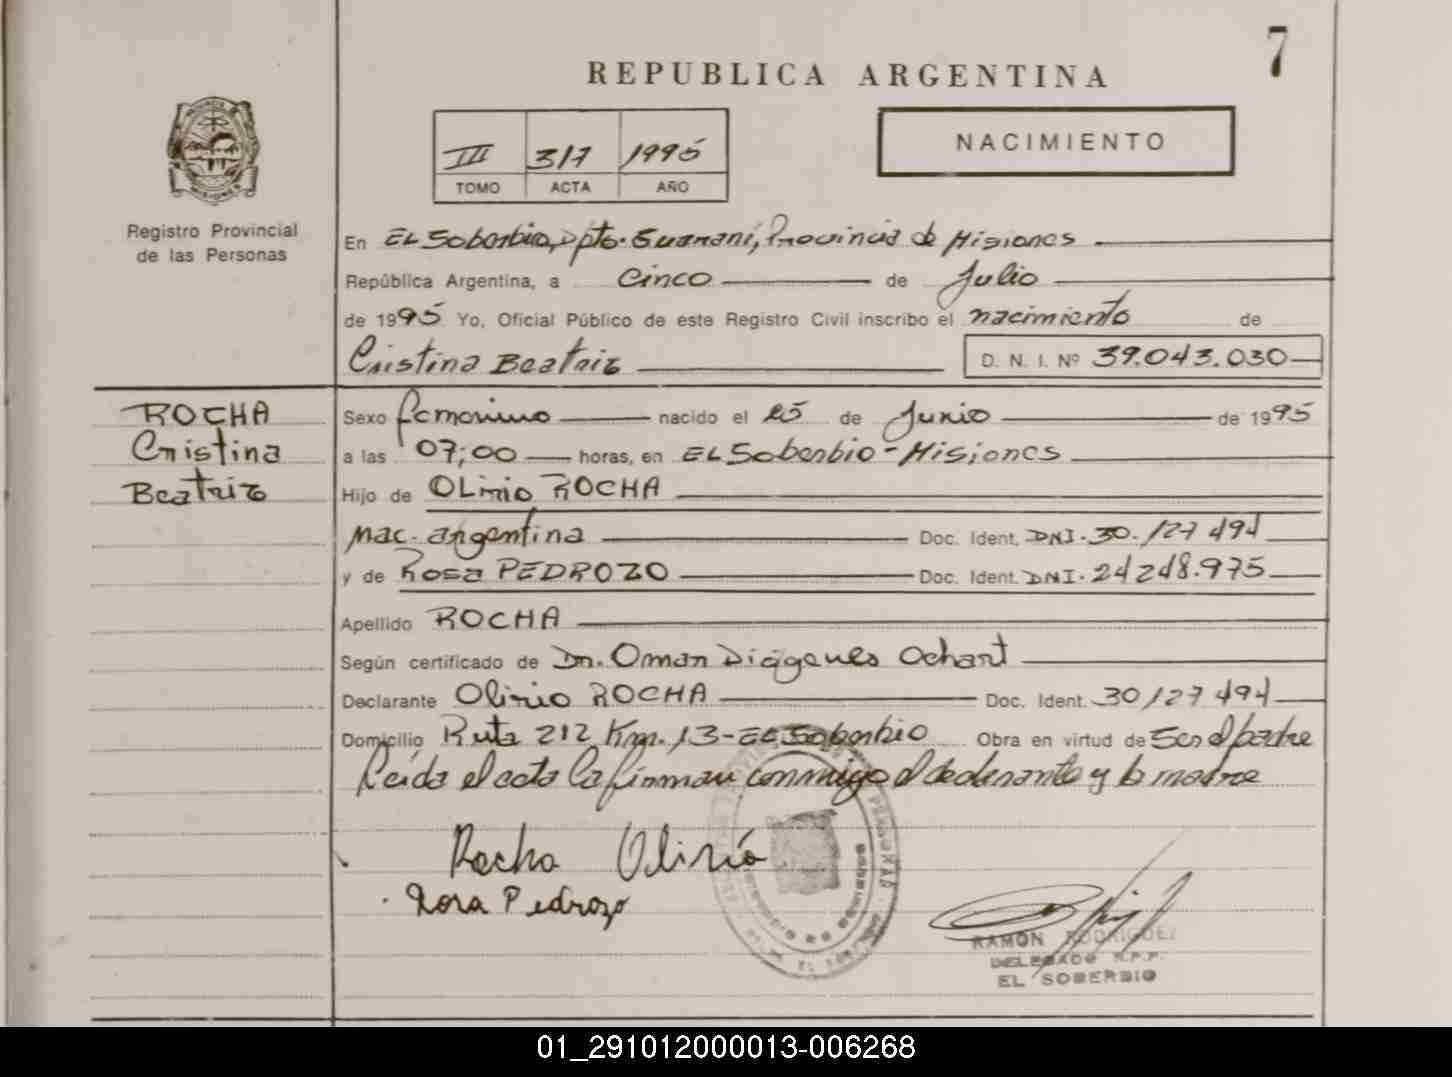 7
REPUBLICA ARGENTINA
III 317 1995
TOMO ACTA AÑO
NACIMIENTO
Registro Provincial
de las Personas
En EL Soberbio, Dpto. Guaraní, Provincia de Misiones
República Argentina, a Cinco de Julio
de 1995 Yo, Oficial Público de este Registro Civil inscribo el nacimiento de
Cristina Beatriz D. N. I. Nº 39.043.030
ROCHA
Cristina
Beatriz
Sexo femenino nacido el 25 de Junio de 1995
a las 07;00 horas, en EL Soberbio - Misiones
Hijo de OLirio ROCHA
nac. argentina Doc. Ident. DNI. 30.127 494
y de Rosa PEDROZO Doc. Ident. DNI. 24248.975
Apellido ROCHA
Según certificado de Dr. Omar Diógenes Ochart
Declarante Olirio ROCHA Doc. Ident. 30127494
Domicilio Ruta 212 Km. 13 - EL Soberbio Obra en virtud de Ser el padre
Leída el acta la firman conmigo el declarante y la madre
Rocha Olirio
Rosa Pedrozo
RAMON RODRIGUEZ
DELEGADO R.P.P.
EL SOBERBIO
01_291012000013-006268